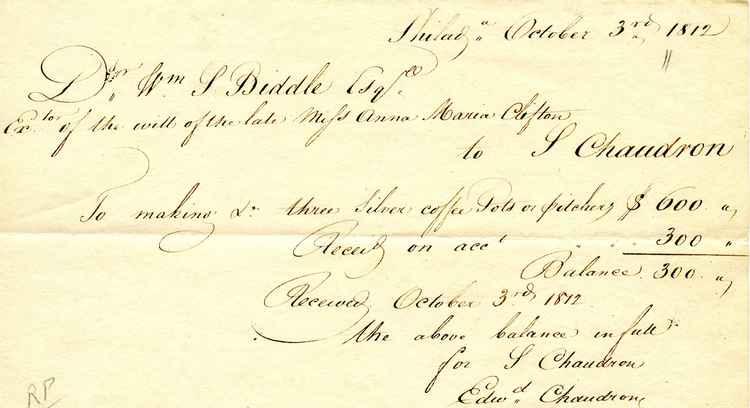 Philad.a October 3rd 1812
Dr Wm S Biddle Esqre
Extor of the will of the late Miss Anna Maria Clifton
to S Chaudron
To making &c three Silver coffee Pots or pitchers $ 600 "
Receiv'd on acct " " " 300 "
Balance 300 "
Received October 3rd 1812
the above balance in full
for S Chaudron
Edwd Chaudron
RP